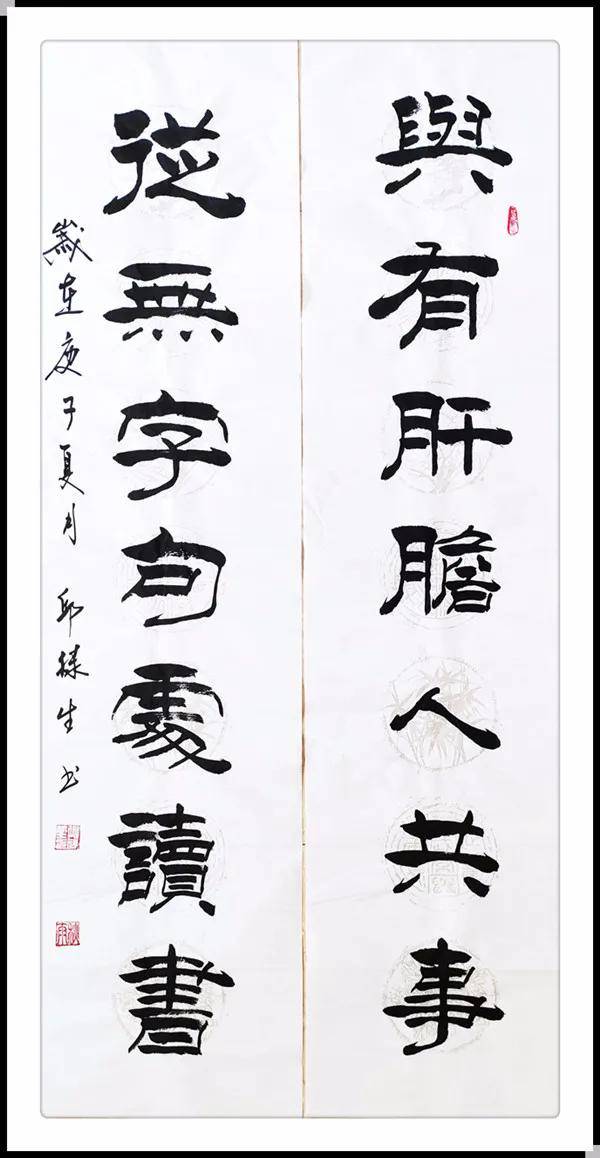 與有肝膽人共事
從無字句處讀書
歲在庚子夏月 邱祿生书